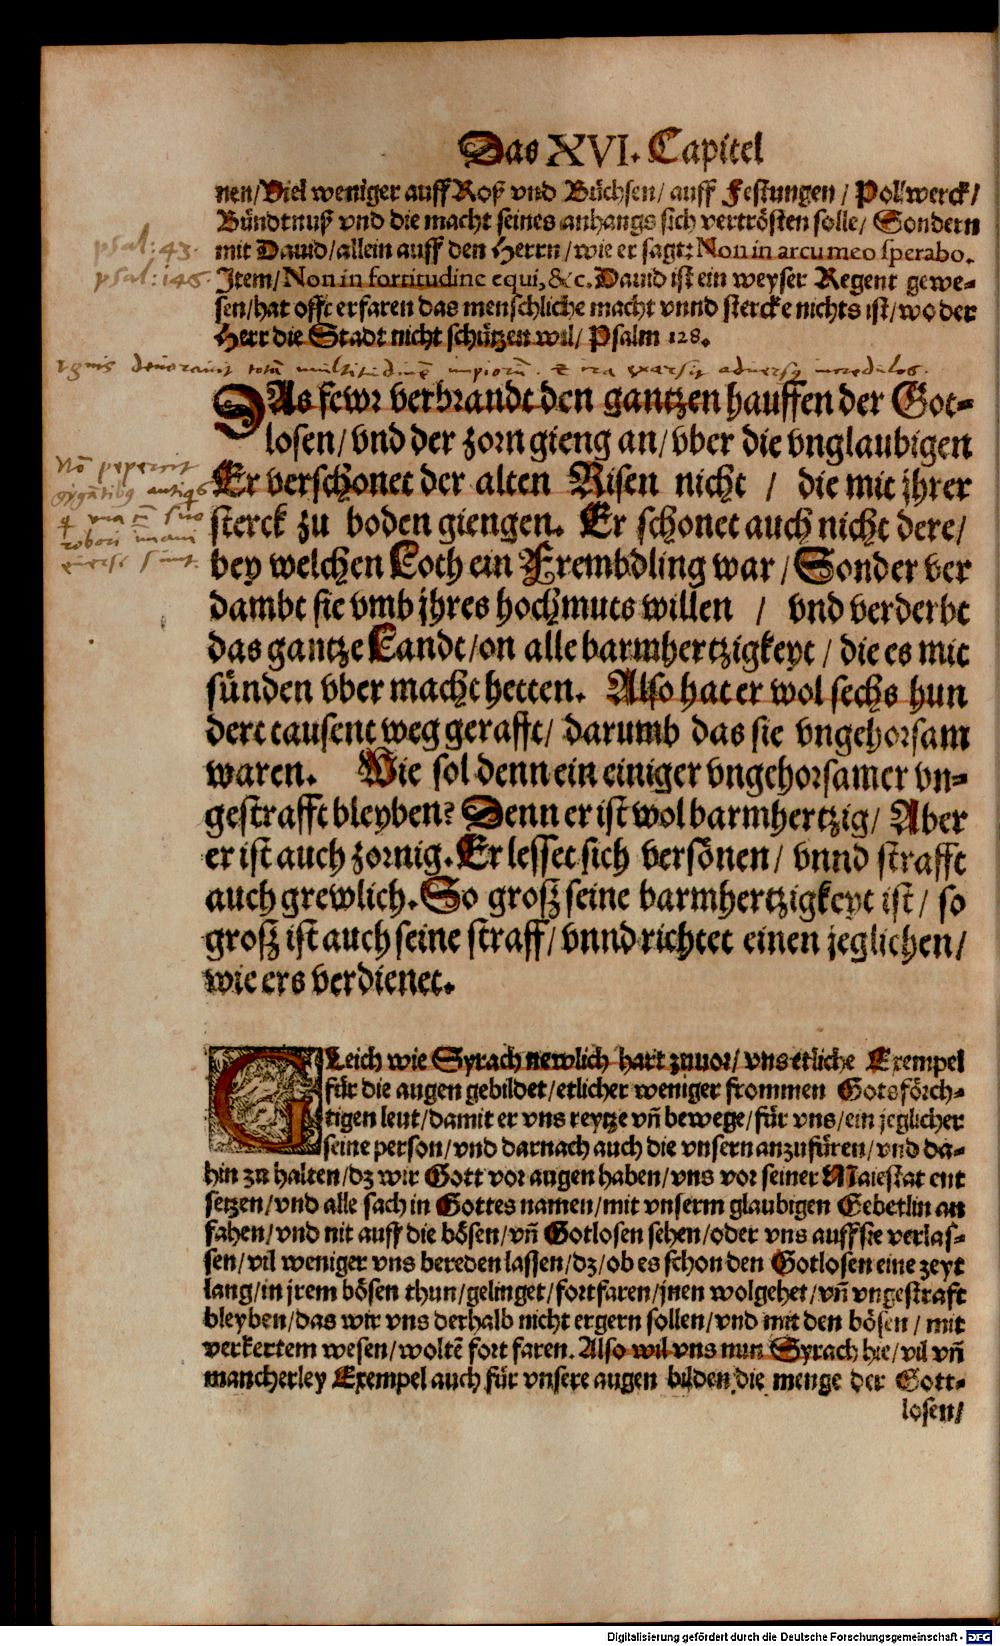 Das XVI. Capitel
nen/ Viel weniger auff Roß vnd Büchsen/ auff Festungen/ Pollwerck/
Bündtnuß vnd die macht seines anhangs sich vertrösten solle/ Sondern
psal: 43.
mit Dauid/ allein auff den Herrn/ wie er sagt: Non in arcu meo sperabo.
psal: 146.
Jtem/ Non in fortitudine equi, &c. Dauid ist ein weyser Regent gewe=
sen/ hat offt erfaren das menschliche macht vnnd stercke nichts ist/ wo der
Herr die Stadt nicht schützen wil/ Psalm 128.
Ignis deuorauit totā multitudinē impiorū. et ira exarsit aduersꝰ incredulos.
DAs fewr verbrandt den gantzen hauffen der Got=
losen/ vnd der zorn gieng an/ vber die vnglaubigen
Er verschonet der alten Risen nicht / die mit jhrer
sterck zu boden giengen. Er schonet auch nicht dere/
bey welchen Loth ein Frembdling war/ Sonder ver
dambt sie vmb jhres hochmuts willen / vnd verderbt
das gantze Landt/ on alle barmhertzigkeyt/ die es mit
sünden vber macht hetten. Also hat er wol sechs hun
dert tausent weg gerafft/ darumb das sie vngehorsam
waren. Wie sol denn ein einiger vngehorsamer vn=
gestrafft bleyben? Denn er ist wol barmhertzig/ Aber
er ist auch zornig. Er lesset sich versönen/ vnnd strafft
auch grewlich. So groß seine barmhertzigkeyt ist/ so
groß ist auch seine straff/ vnnd richtet einen jeglichen/
wie ers verdienet.
Nō pepercit
gygātibꝰ antiqs
robori
GLeich wie Syrach newlich hart zuuor/ vns etliche Exempel
für die augen gebildet/ etlicher weniger frommen Gotsförch=
tigen leut/ damit er vns reytze vñ bewege/ für vns/ ein jeglicher
seine person/ vnd darnach auch die vnsern anzufüren/ vnd da=
hin zu halten/ dz wir Gott vor augen haben/ vns vor seiner Maiestat ent
setzen/ vnd alle sach in Gottes namen/ mit vnserm glaubigen Gebetlin an
fahen/ vnd nit auff die bösen/ vñ Gotlosen sehen/ oder vns auff sie verlas=
sen/ vil weniger vns bereden lassen/ dz/ ob es schon den Gotlosen eine zeyt
lang/ in jrem bösen thun/ gelinget/ fortfaren/ jnen wolgehet/ vñ vngestraft
bleyben/ das wir vns derhalb nicht ergern sollen/ vnd mit den bösen/ mit
verkertem wesen/ woltē fort faren. Also wil vns nun Syrach hie/ vil vñ
mancherley Exempel auch für vnsere augen bilden die menge der Gott=
losen/
Digitalisierung gefördert durch die Deutsche Forschungsgemeinschaft - DFG